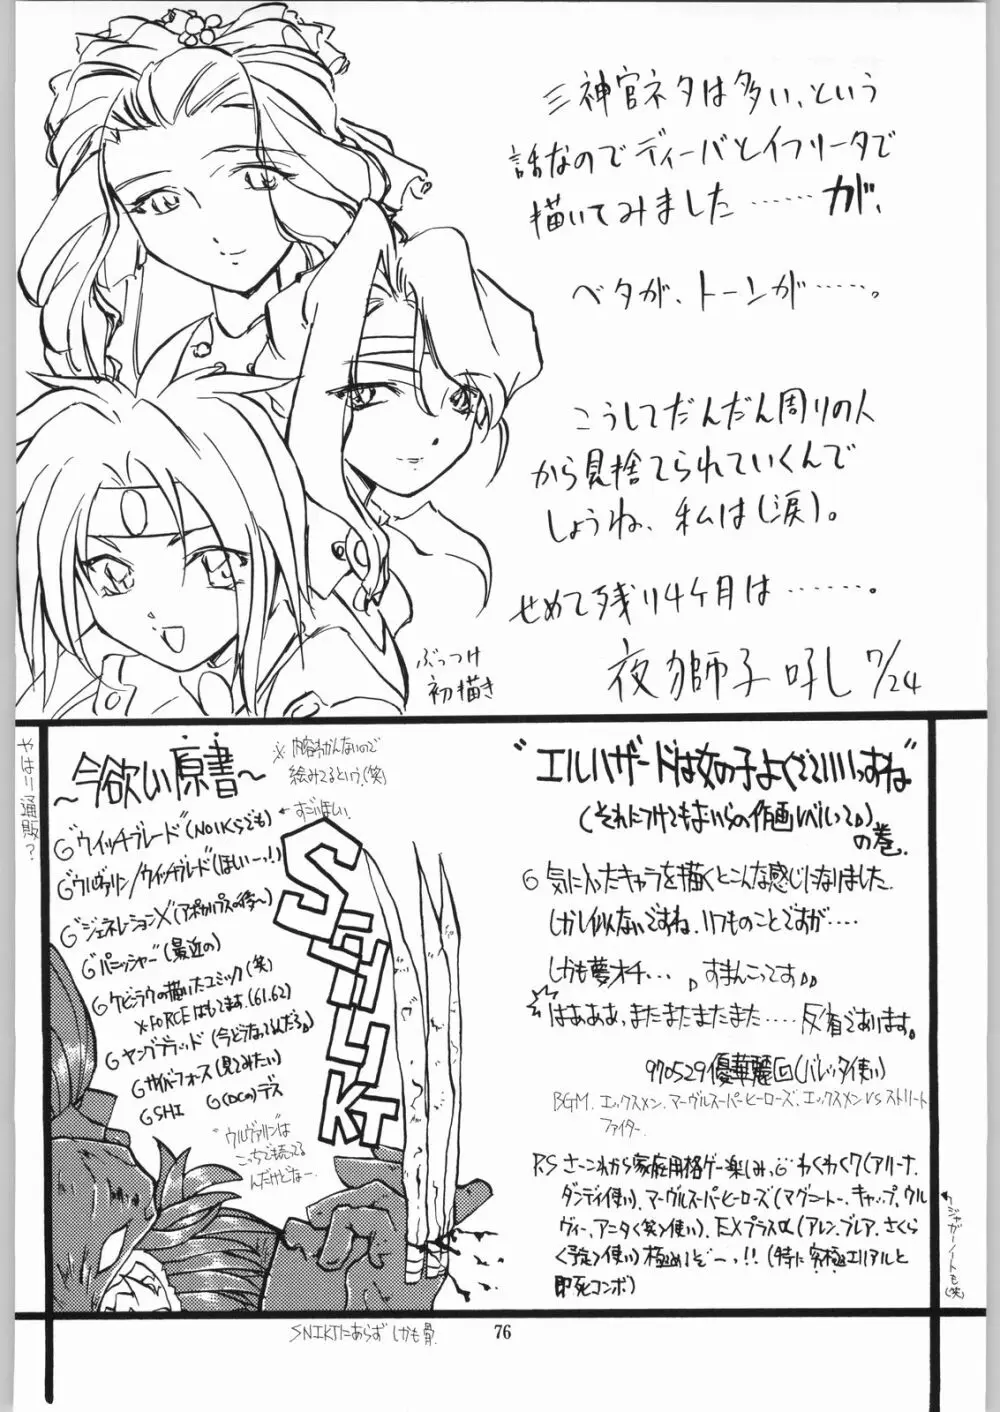 三神官ネタは多い、という
話なのでディーバとイフリータで
描いてみました……が、
ベタが、トーンが……。
こうしてだんだん周りの人
から見捨てられていくんで
しょうね、私は(涙)。
せめて残り4ヶ月は………。
夜獅子吼し 7/24
ぶっつけ
初描き
やはり通販?
~今欲しい原書~
※内容わかんないので
絵みてるという(笑)
←すごいほしい
G"ウイッチブレード"(NO1KSでも)
G"ウルヴァリン/ウィッチブレード"(ほしいー!)
G"ジェネレーションX"(アポカリプスの後~)
G"パニッシャー"(最近の)
Gケビンラウの描いたコミック(笑)
X-FORCEはもってます。(61.62)
Gヤングブラッド(今どうなってんだろ)
Gサイバーフォース(見てみたい)
GSHI G(DCの)デス
"ウルヴァリン"は
こっちで売ってる
んだけどなー
SHLIKT
SNIKTにあらず しかも骨
"エルハザードは女の子よくでていいっすね"
(それにつけてもおいらの作画レベルって)
の巻
G 気に入ったキャラを描くとこんな感じになりました
しかし似ないですね、いつものことですが‥‥
しかも夢オチ… すまんこってす
はあああ、またまたまたまた‥‥反省であります。
970529優華麗(バレッタ使い)
BGM. エックスメン、マーヴルスーパーヒーローズ、エックスメンVSストリート
ファイター
P.S さーこれから家庭用格ゲー楽しみ、G"わくわく7(アリーナ、
ダンディ使い)、マーヴルスーパーヒーローズ(マグニートー、キャップ、ウル
ヴィー、アニタく(笑)使い)、EXプラスα(アレン、ブレア、さくら
く予定)使い)極めるぞーっ!!(特に究極エリアルと
即死コンボ)
ジャガーノートも(笑)
76